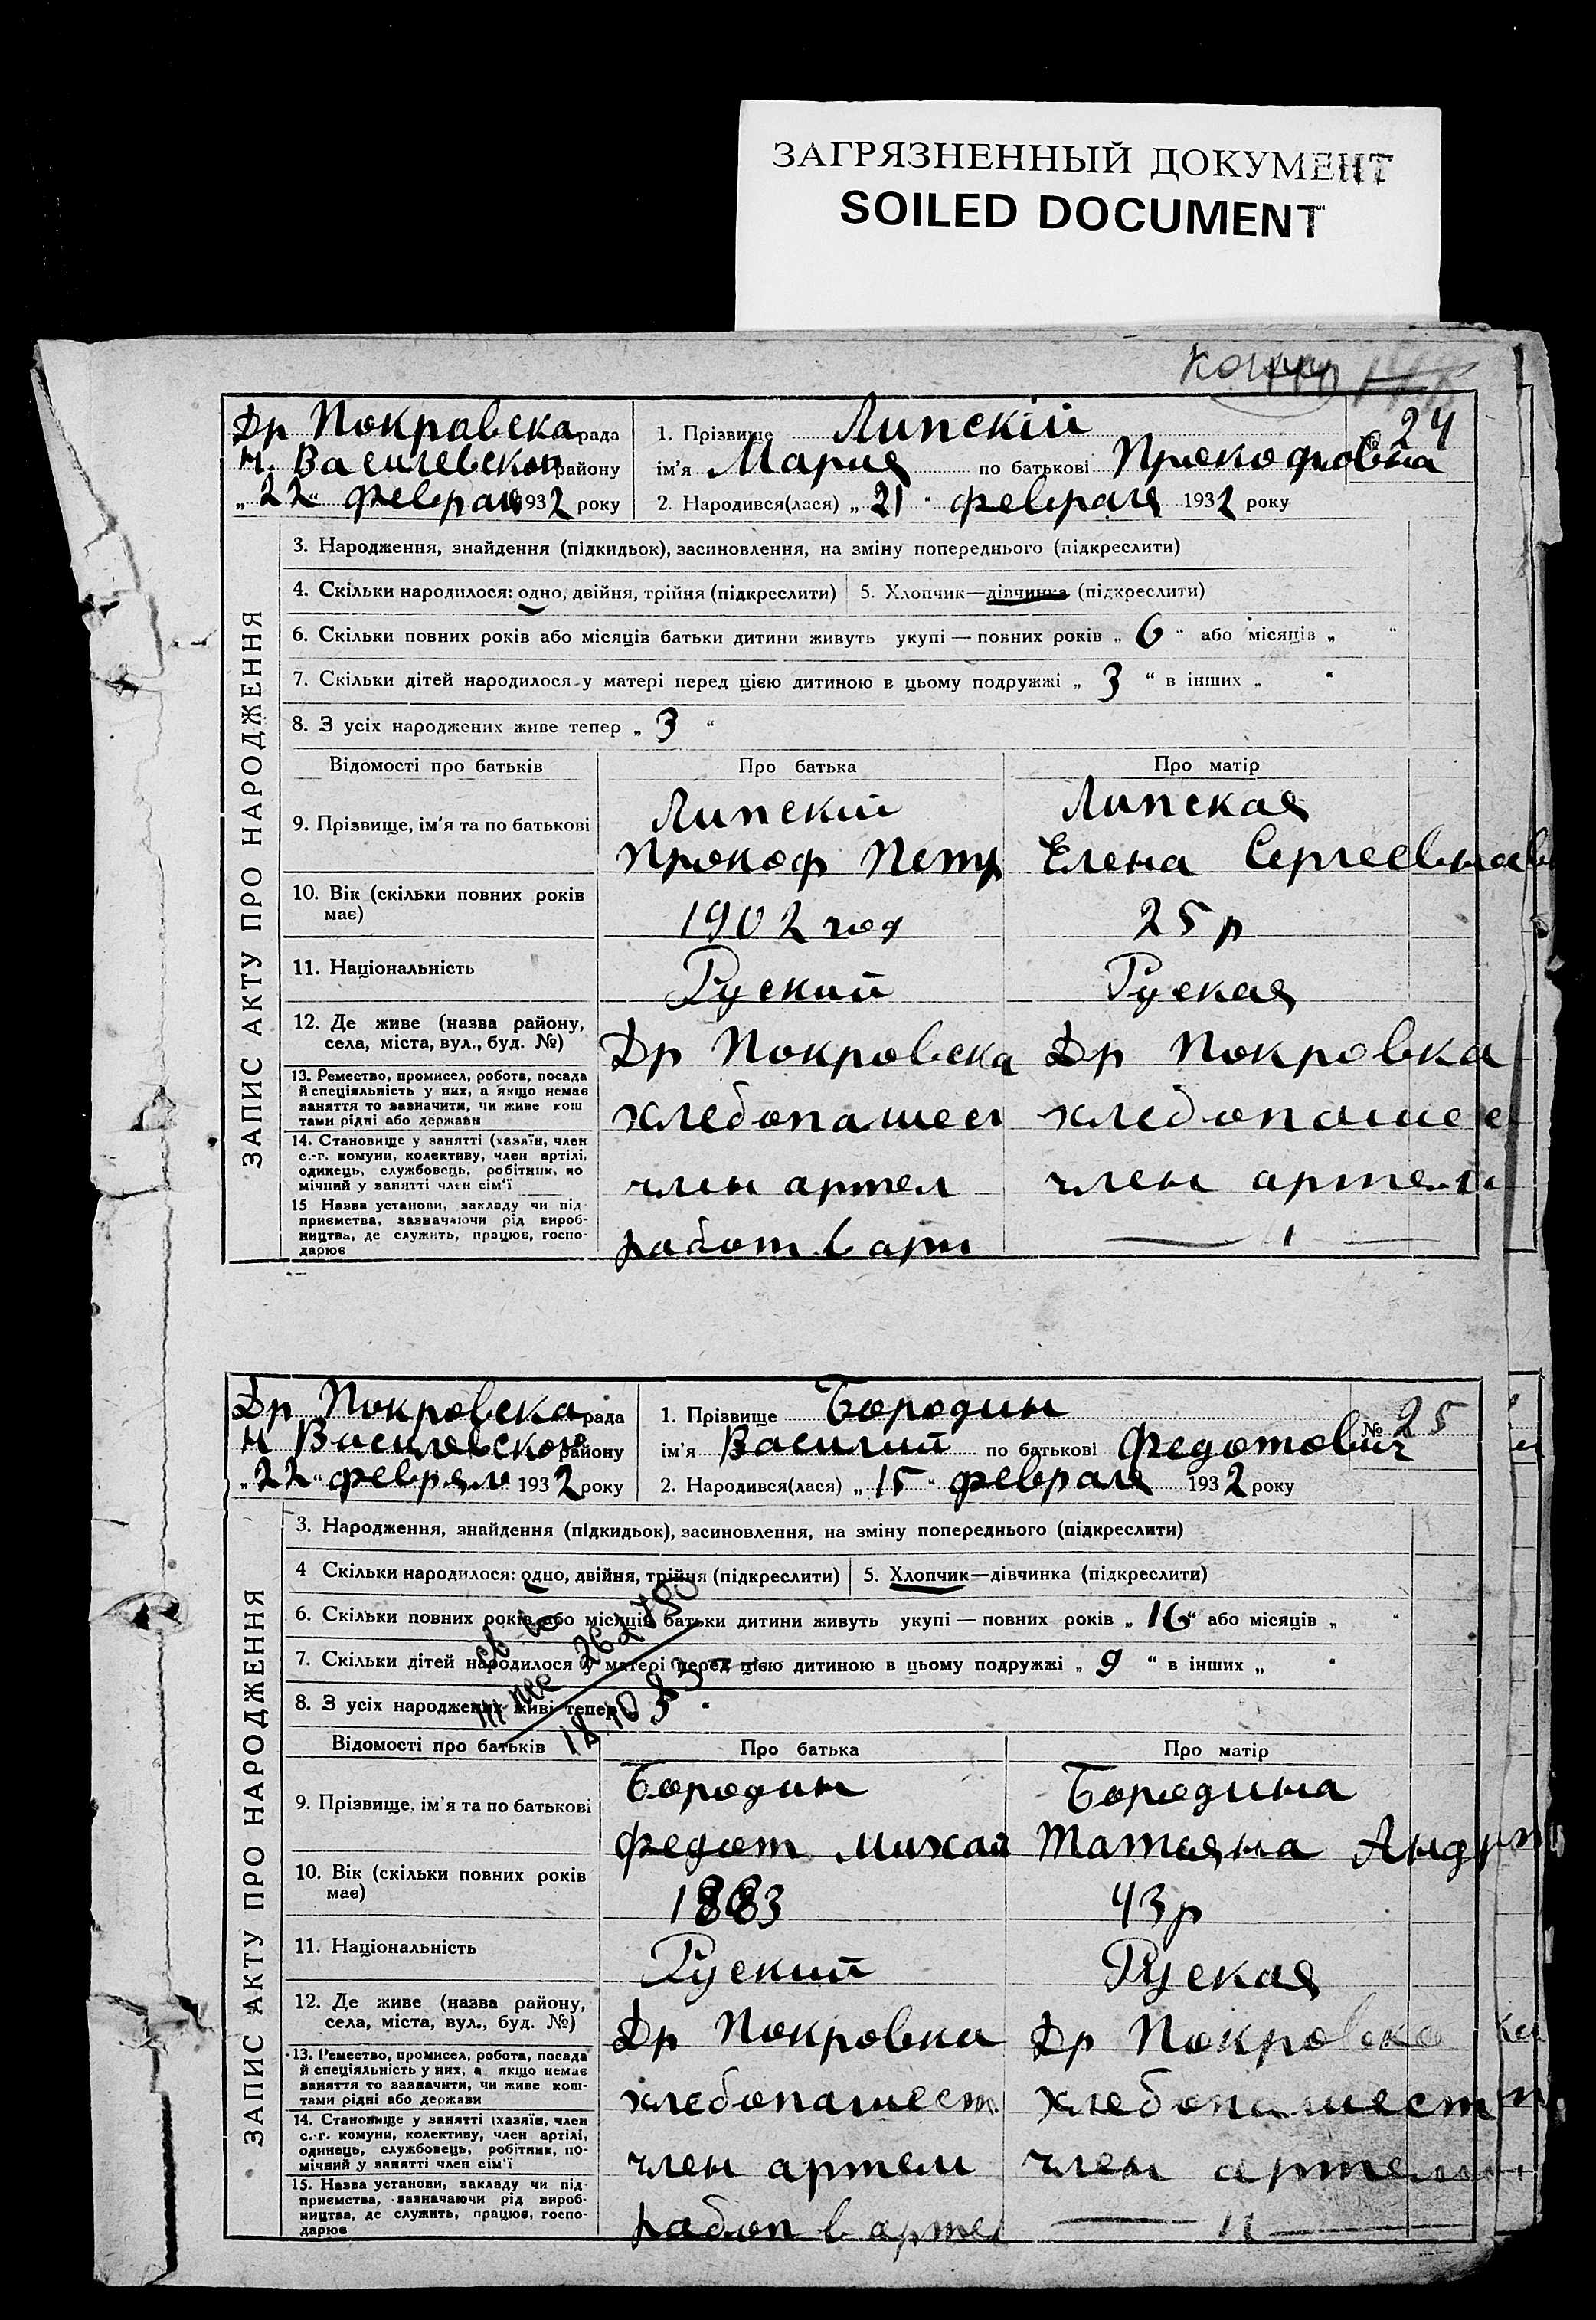 ЗАГРЯЗНЕННЫЙ ДОКУМЕНТ
SOILED DOCUMENT
ЗАПИС АКТУ ПРО НАРОДЖЕННЯ
Др Покравска рада
Н. Василевскоп району
„22" Февраля 1932 року
№ 24
1. Прізвище Липскій
ім'я Мария по батькові Прокофиовна
2. Народився(лася) „21" февраля 1932 року
3. Народження, знайдення (підкидьок), засиновлення, на зміну попереднього (підкреслити)
4. Скільки народилося: одно, двійня, трійня (підкреслити) 5. Хлопчик—дівчинка (підкреслити)
6. Скільки повних років або місяців батьки дитини живуть укупі — повних років „6" або місяців „ "
7. Скільки дітей народилося у матері перед цією дитиною в цьому подружжі „3" в інших „ "
8. З усіх народжених живе тепер „3"
Відомості про батьків Про батька Про матір
9. Прізвище, ім'я та по батькові
Липский Липская
Прокоф Петр Елена Сергеевна
10. Вік (скільки повних років
має)
1902 год 25 р
11. Національність Руский Руская
12. Де живе (назва району,
села, міста, вул., буд. №)
Др Покровска Др Покровка
13. Ремество, промисел, робота, посада
й спеціяльність у них, а якщо немає
заняття то зазначити, чи живе кош
тами рідні або держави
хлебопашес хлебопашес
14. Становище у занятті (хазяїн, член
с.-г. комуни, колективу, член артілі,
одинець, службовець, робітник, по
мічний у занятті член сім'ї
член артел член артели
15 Назва установи, закладу чи під
приємства, зазначаючи рід вироб-
ництва, де служить, працює, госпо-
дарює
работ в арт
ЗАПИС АКТУ ПРО НАРОДЖЕННЯ
Др Покровска рада
Н Василевского району
„22" февраля 1932 року
№ 25
1. Прізвище Бородин
ім'я Василий по батькові Федотович
2. Народився(лася) „15" февраля 1932 року
3. Народження, знайдення (підкидьок), засиновлення, на зміну попереднього (підкреслити)
4 Скільки народилося: одно, двійня, трійня (підкреслити) 5. Хлопчик—дівчинка (підкреслити)
6. Скільки повних років або місяців батьки дитини живуть укупі — повних років „16" або місяців „ "
7. Скільки дітей народилося у матері перед цією дитиною в цьому подружжі „9" в інших „ "
8. З усіх народжених живі тепер
Відомості про батьків Про батька Про матір
9. Прізвище, ім'я та по батькові
Бородин Бородина
Федот Михай Татьяна Андр
10. Вік (скільки повних років
має)
1883 43 р
11. Національність Руский Руская
12. Де живе (назва району,
села, міста, вул., буд. №)
Др Покровка Др Покровка
13. Ремество, промисел, робота, посада
й спеціяльність у них, а якщо немає
заняття то зазначити, чи живе кош-
тами рідні або держави
хлебопашест хлебопашест
14. Становище у занятті (хазяїн, член
с.-г. комуни, колективу, член артілі,
одинець, службовець, робітник, по-
мічний у занятті член сім'ї
член артели член артели
15. Назва установи, закладу чи під
приємства, зазначаючи рід вироб-
ництва, де служить, працює, госпо-
дарює
работ в артел